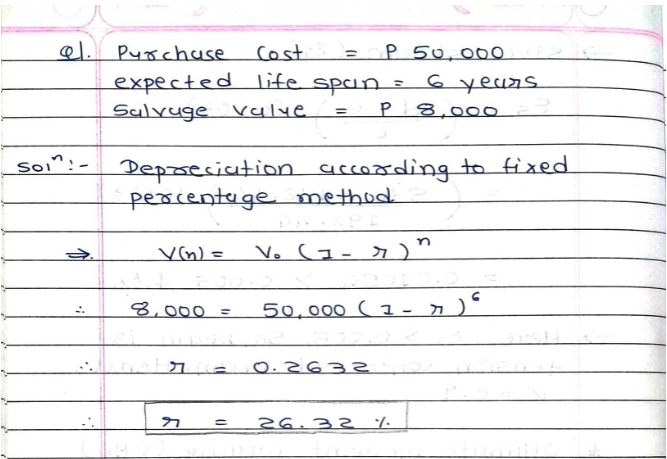 Q1. Purchase Cost = P 50,000
expected life span = 6 years
Salvage value = P 8,000
Solⁿ:- Depreciation according to fixed
percentage method
⇒ V(n) = V₀ (1 - r)ⁿ
∴ 8,000 = 50,000 (1 - r)⁶
∴ r = 0.2632
∴ r = 26.32 %